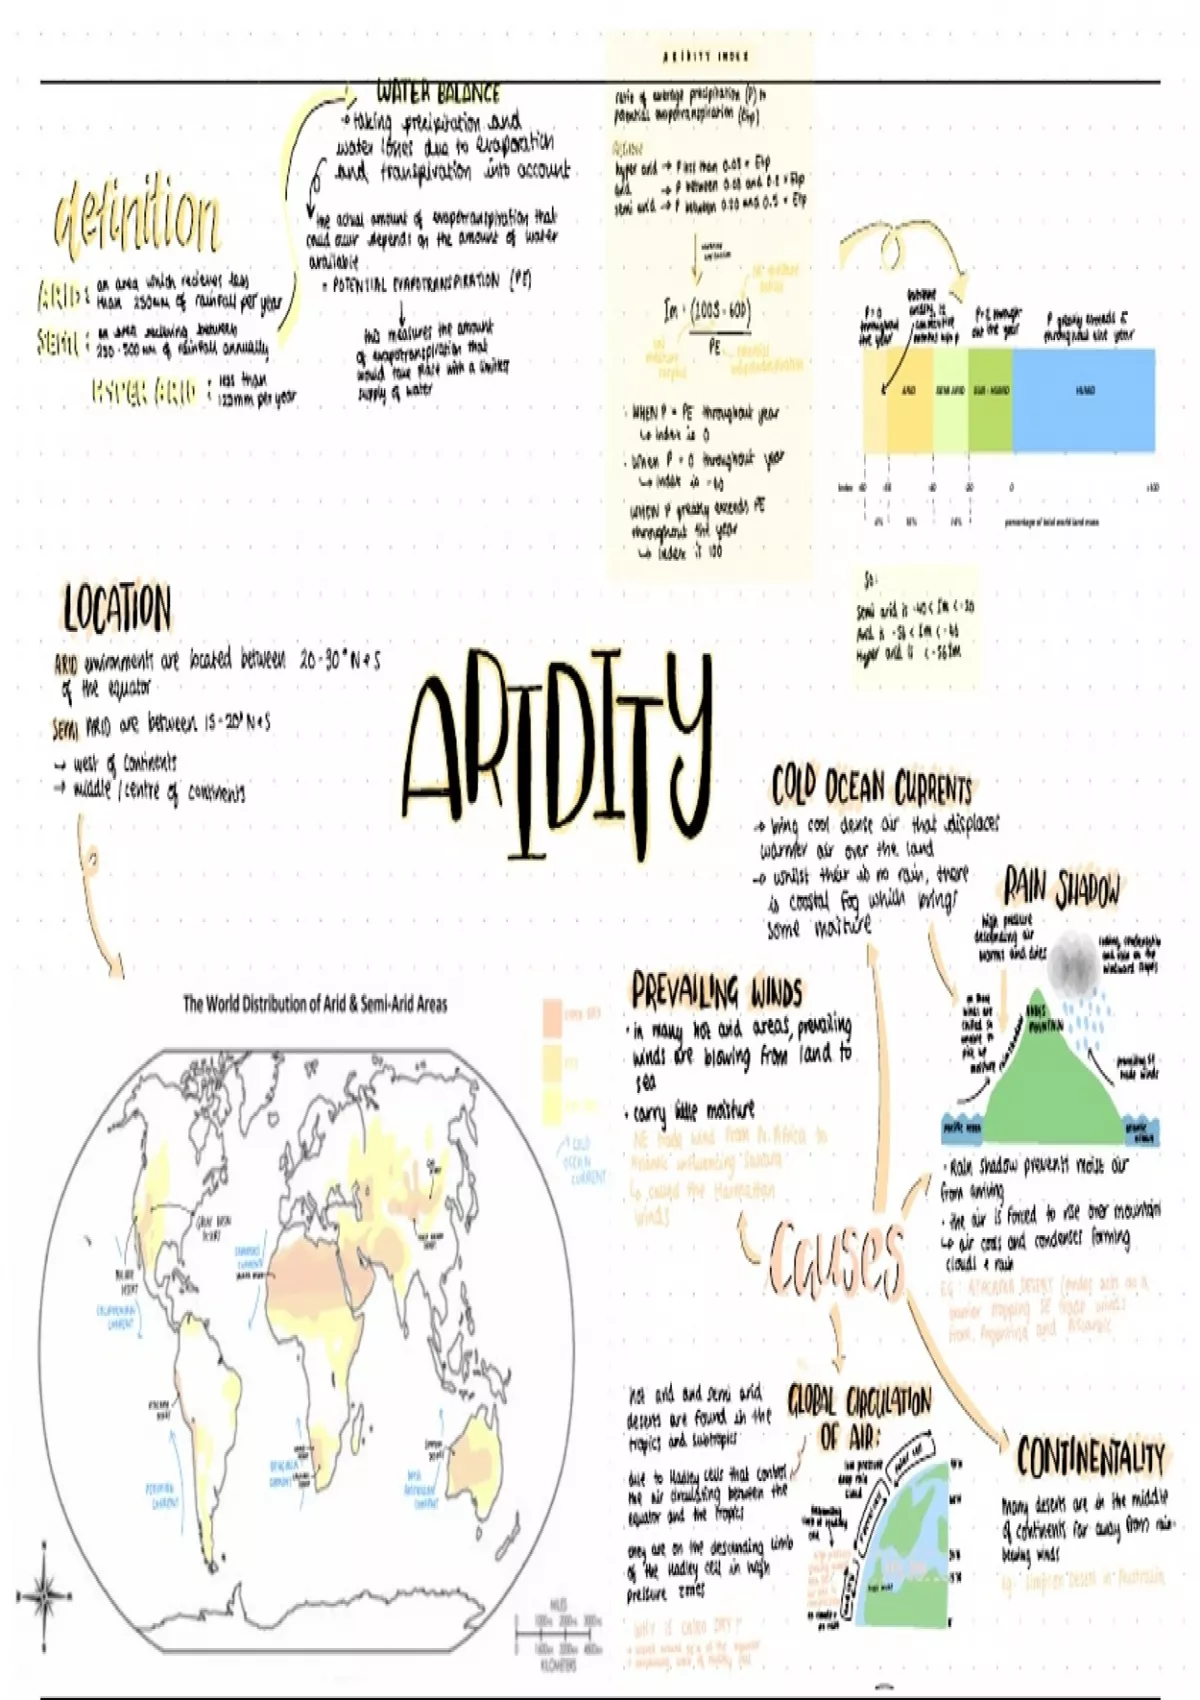 ARIDITY INDEX
WATER BALANCE
→ taking precipitation and
water losses due to evaporation
and transpiration into account
the actual amount of evapotranspiration that
could occur depends on the amount of water
available
= POTENTIAL EVAPOTRANSPIRATION (PE)
this measures the amount
of evapotranspiration that
would take place with a limitless
supply of water
definition
ARID: an area which recieves less
than 250mm of rainfall per year
SEMI: an area recieving between
250-500 mm of rainfall annually
HYPER ARID: less than
125mm per year
ratio of average precipitation (P) to
potential evapotranspiration (Etp)
hyper arid → P less than 0.05 × Etp
arid → P between 0.05 and 0.2 × Etp
semi arid → P between 0.20 and 0.5 × Etp
Im = (100S - 60D)
PE
WHEN P = PE throughout year
↳ index is 0
When P = 0 throughout year
↳ index is -60
WHEN P greatly exceeds PE
throughout the year
↳ index is 100
P=0
throughout
the year
P greatly exceeds E
throughout the year
ARID
SEMI ARID
SUB-HUMID
HUMID
index
0
+100
percentage of total world land mass
So:
Semi arid is -40 < Im < -20
Arid is -56 < Im < -40
Hyper arid is < -56 Im
LOCATION
ARID environments are located between 20-30° N & S
of the equator
SEMI ARID are between 15-20° N & S
→ west of continents
→ middle / centre of continents
ARIDITY
COLD OCEAN CURRENTS
→ bring cool dense air that displaces
warmer air over the land
→ whilst their is no rain, there
is coastal fog which brings
some moisture
RAIN SHADOW
high pressure
descending air
warms and dries
cooling, condensation
and rain on the
windward slopes
ANDES
MOUNTAIN
rainshadow
prevailing SE
trade winds
pacific ocean
PREVAILING WINDS
· in many hot arid areas, prevailing
winds are blowing from land to
sea
· carry little moisture
NE trade wind from N. Africa to
Atlantic influencing Sahara
↳ called the Harmattan
winds
· Rain shadow prevents moist air
from arriving
· the air is forced to rise over mountain
↳ air cools and condenses forming
clouds & rain
EG: ATACAMA DESERT (Andes acts as a
barrier stopping SE trade winds
from Argentina and Atlantic
causes
The World Distribution of Arid & Semi-Arid Areas
COLD
OCEAN
CURRENT
GREAT BASIN
DESERT
CALIFORNIAN
CURRENT
CANARIES
CURRENT
ATACAMA
DESERT
PERUVIAN
CURRENT
BENGUELA
CURRENT
WEST
AUSTRALIAN
CURRENT
MILES
KILOMETERS
hot arid and semi arid
deserts are found in the
tropics and subtropics
due to Hadley cells that control
the air circulating between the
equator and the tropics
they are on the descending limb
of the Hadley cell in high
pressure zones
GLOBAL CIRCULATION
OF AIR:
CONTINENTALITY
Many deserts are in the middle
of continents far away from rain-
bearing winds
eg: Simpson Desert in Australia